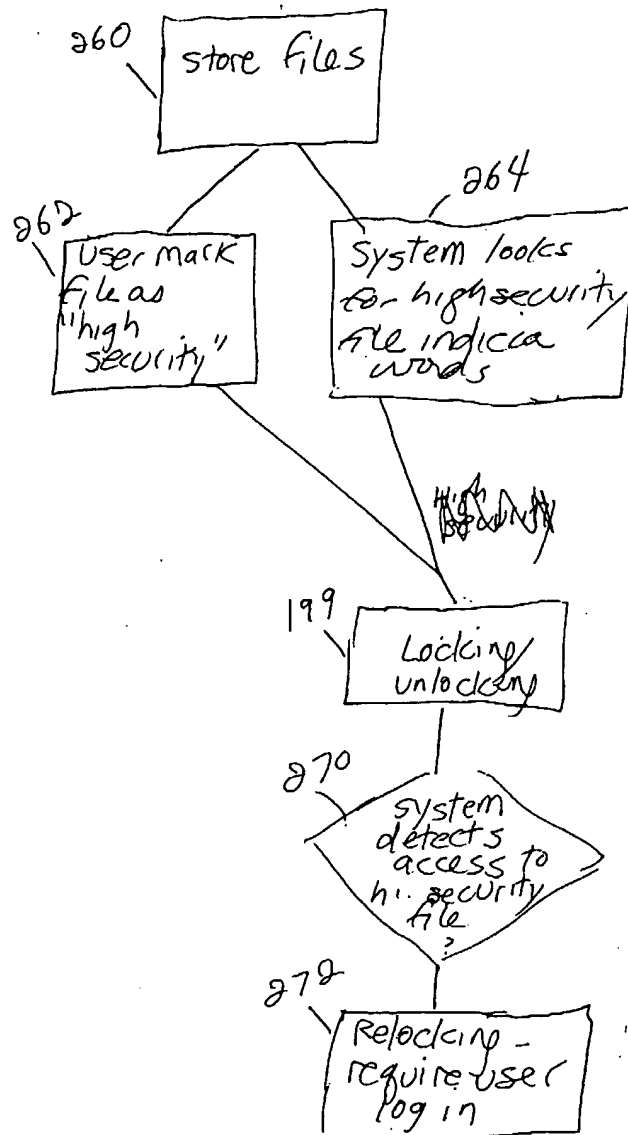 260
store files
264
262
user mark
file as
"high
security"
System looks
for high security
file indicia
words
199
Locking/
unlocking
270
system
detects
access to
hi. security
file
?
272
Relocking -
require user
log in